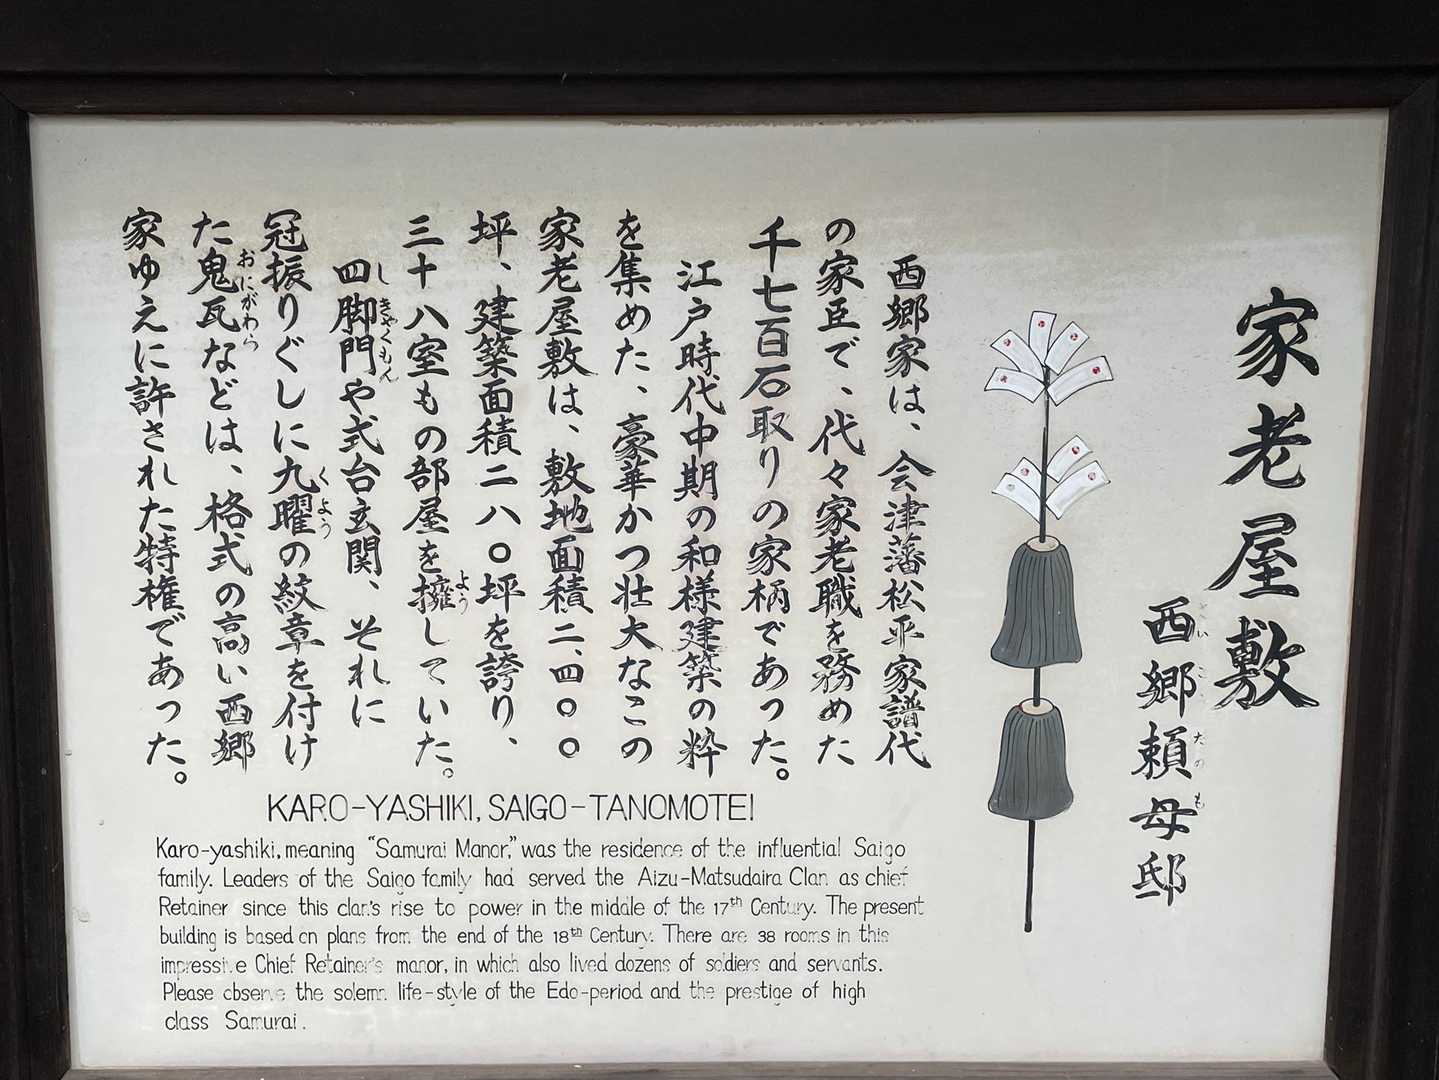 家老屋敷
西郷頼母邸
さい ごう たの も
西郷家は、会津藩松平家譜代
の家臣で、代々家老職を務めた
千七百石取りの家柄であった。
江戸時代中期の和様建築の粋
を集めた、豪華かつ壮大なこの
家老屋敷は、敷地面積二、四〇〇
坪、建築面積二八〇坪を誇り、
三十八室もの部屋を擁していた。
よう
四脚門や式台玄関、それに
しきゃくもん
冠振りぐしに九曜の紋章を付け
くよう
た鬼瓦などは、格式の高い西郷
おにがわら
家ゆえに許された特権であった。
KARO-YASHIKI, SAIGO-TANOMOTEI
Karo-yashiki, meaning "Samurai Manor," was the residence of the influential Saigo
family. Leaders of the Saigo family had served the Aizu-Matsudaira Clan as chief
Retainer since this clan's rise to power in the middle of the 17th Century. The present
building is based on plans from the end of the 18th Century. There are 38 rooms in this
impressive Chief Retainer's manor, in which also lived dozens of soldiers and servants.
Please observe the solemn life-style of the Edo-period and the prestige of high
class Samurai.